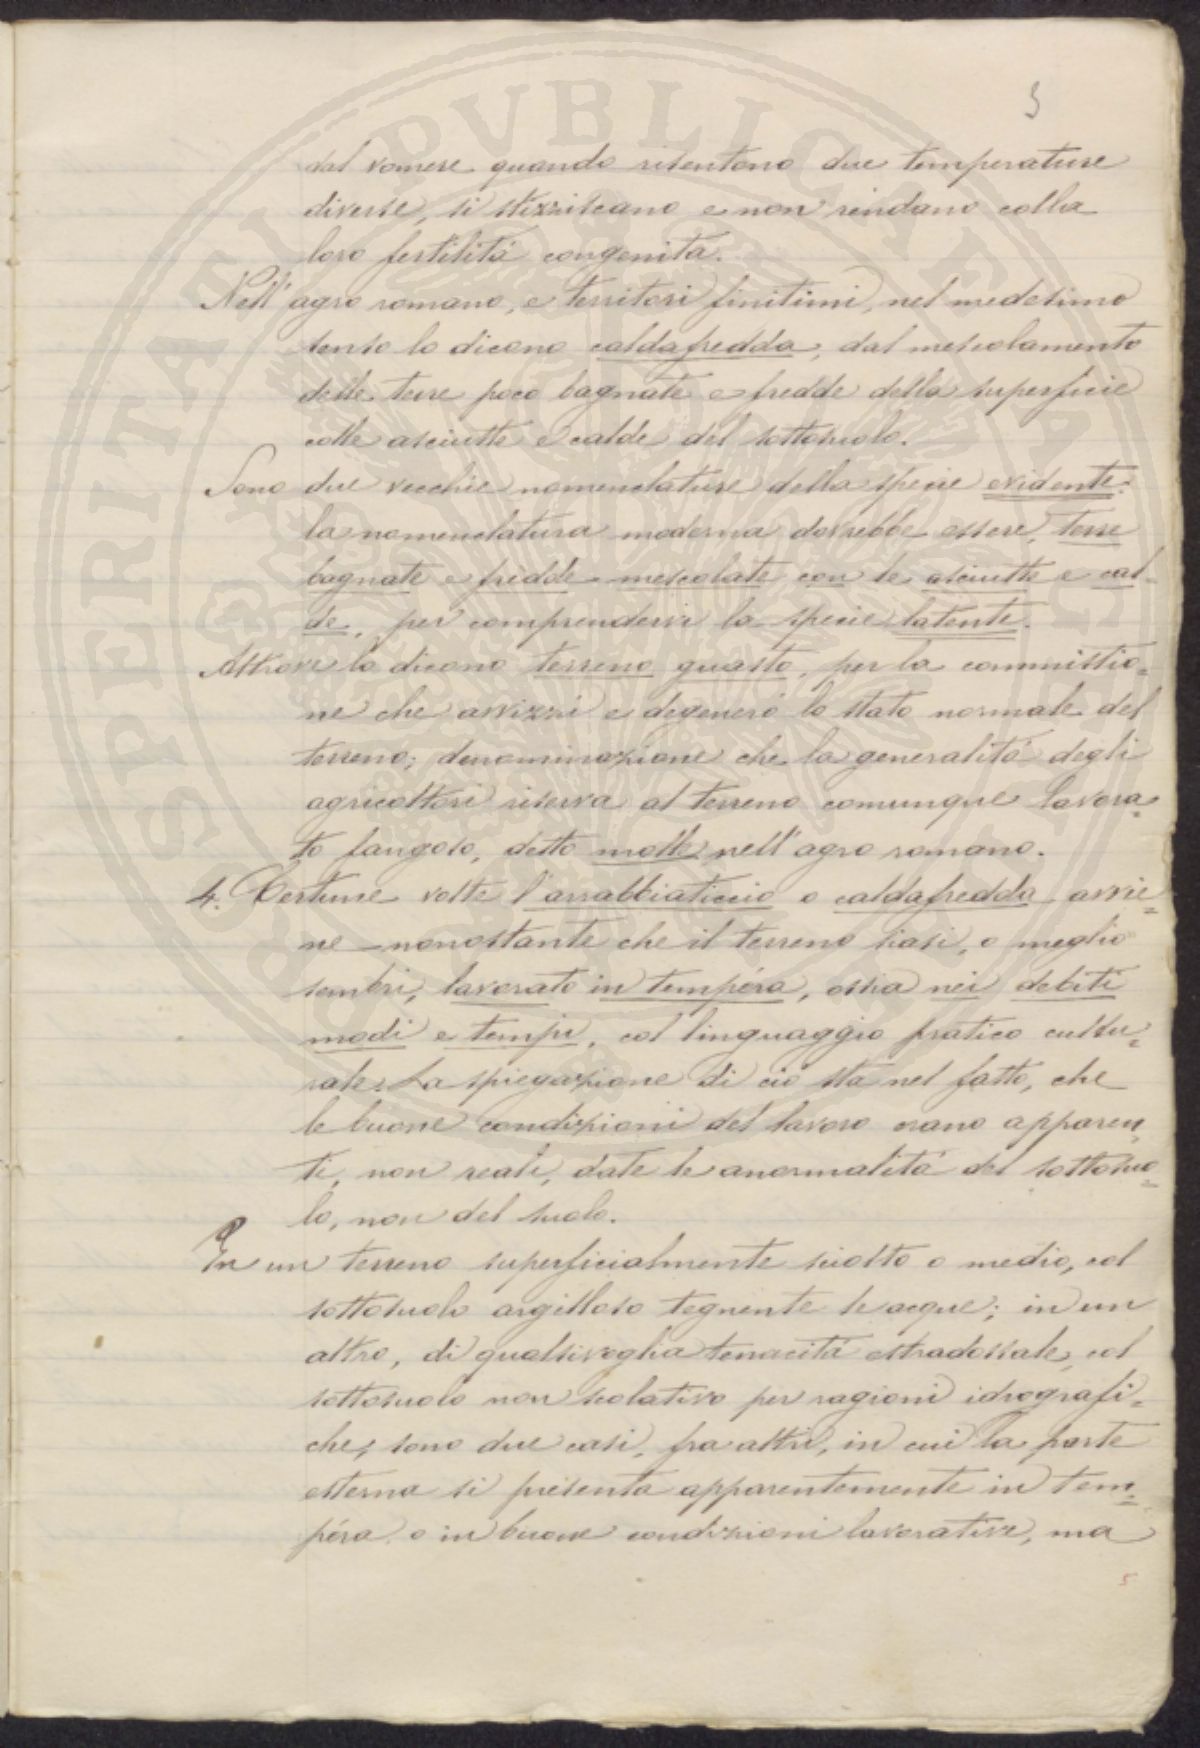 3
dal vomere quando risentono due temperature
diverse, si stizziscano e non rendano colla
loro fertilità congenita.
Nell'agro romano, e territori finitimi, nel medesimo
senso lo dicono caldafredda, dal mescolamento
delle terre poco bagnate e fredde della superficie
colle asciutte e calde del sottosuolo.
Sono due vecchie nomenclature della specie evidente:
la nomenclatura moderna dovrebbe essere, terre
bagnate e fredde mescolate con le asciutte e cal-
de, per comprendervi la specie latente.
Altrove lo dicono terreno guasto, per la commistio-
ne che avvizzì e degenerò lo stato normale del
terreno; denominazione che la generalità degli
agricoltori riserva al terreno comunque lavora-
to fangoso, detto molle nell'agro romano.
4. Certune volte l'arrabbiaticcio o caldafredda avvie-
ne nonostante che il terreno siasi, o meglio
sembri, lavorato in tempéra, ossia nei debiti
modi e tempi, col linguaggio pratico cultu-
rale. La spiegazione di ciò sta nel fatto, che
le buone condizioni del lavoro erano apparen-
ti, non reali, date le anormalità del sottosuo-
lo, non del suolo.
In un terreno superficialmente sciolto o medio, col
sottosuolo argilloso tegnente le acque; in un
altro, di qualsivoglia tenacità estradossale, col
sottosuolo non scolativo per ragioni idrografi-
che, sono due casi, fra altri, in cui la parte
esterna si presenta apparentemente in tem-
péra o in buone condizioni lavorative, ma
5
PROSPERITAS PVBLICAE